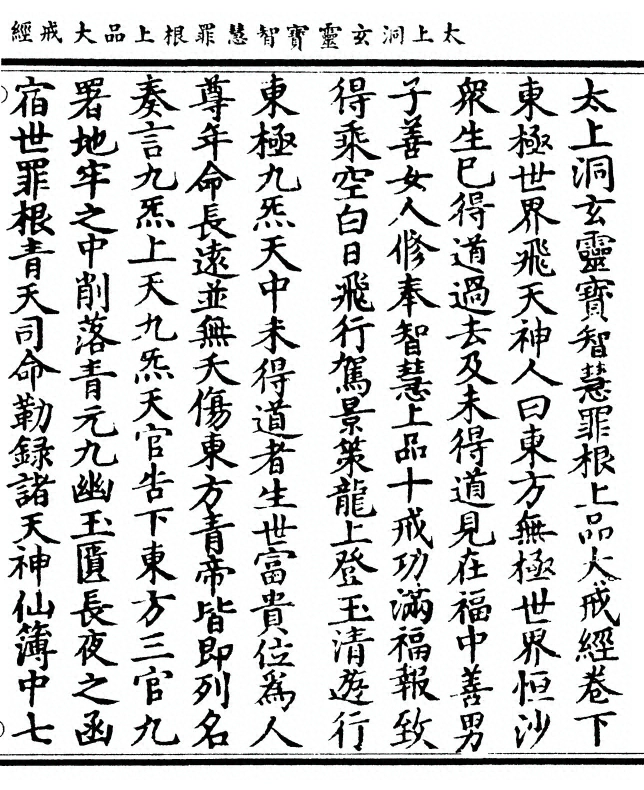 太上洞玄靈寶智慧罪根上品大戒經
太上洞玄靈寶智慧罪根上品大戒經卷下
東極世界飛天神人曰東方無極世界恒沙
衆生巳得道過去及未得道見在福中善男
子善女人修奉智慧上品十戒功滿福報致
得乘空白日飛行駕景策龍上登玉清遊行
東極九炁天中未得道者生世富貴位爲人
尊年命長遠並無夭傷東方青帝皆即列名
奏言九炁上天九炁天官告下東方三官九
署地牢之中削落青元九幽玉匱長夜之函
宿世罪根青天司命勒録諸天神仙簿中七